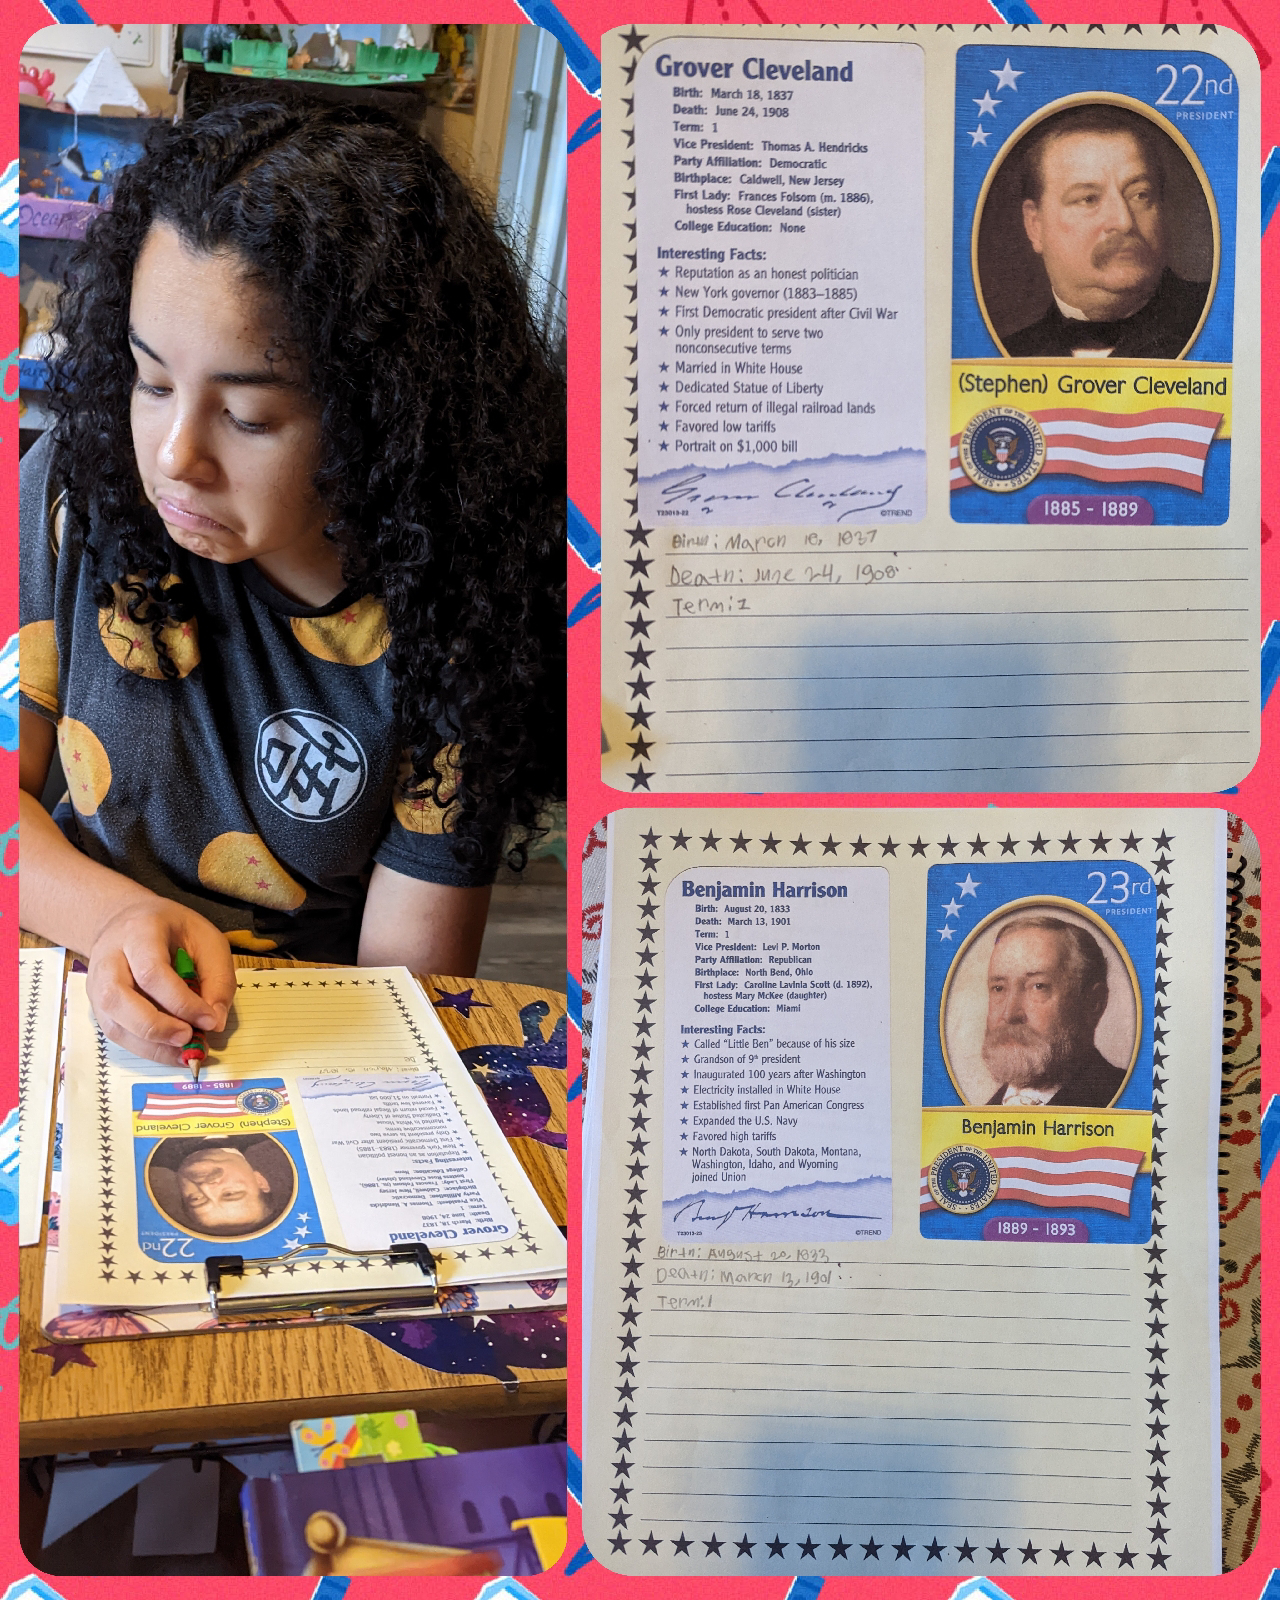 Ocean
Grover Cleveland
Birth: March 18, 1837
Death: June 24, 1908
Term: 1
Vice President: Thomas A. Hendricks
Party Affiliation: Democratic
Birthplace: Caldwell, New Jersey
First Lady: Frances Folsom (m. 1886),
hostess Rose Cleveland (sister)
College Education: None
Interesting Facts:
★ Reputation as an honest politician
★ New York governor (1883–1885)
★ First Democratic president after Civil War
★ Only president to serve two
nonconsecutive terms
★ Married in White House
★ Dedicated Statue of Liberty
★ Forced return of illegal railroad lands
★ Favored low tariffs
★ Portrait on $1,000 bill
Grover Cleveland
T23013-22 ©TREND
22nd
PRESIDENT
(Stephen) Grover Cleveland
PRESIDENT OF THE UNITED STATES
SEAL OF THE
1885 - 1889
Birth: March 18, 1837
Death: June 24, 1908
Term: 1
Benjamin Harrison
Birth: August 20, 1833
Death: March 13, 1901
Term: 1
Vice President: Levi P. Morton
Party Affiliation: Republican
Birthplace: North Bend, Ohio
First Lady: Caroline Lavinia Scott (d. 1892),
hostess Mary McKee (daughter)
College Education: Miami
Interesting Facts:
★ Called "Little Ben" because of his size
★ Grandson of 9th president
★ Inaugurated 100 years after Washington
★ Electricity installed in White House
★ Established first Pan American Congress
★ Expanded the U.S. Navy
★ Favored high tariffs
★ North Dakota, South Dakota, Montana,
Washington, Idaho, and Wyoming
joined Union
Benj Harrison
T23013-23 ©TREND
23rd
PRESIDENT
Benjamin Harrison
PRESIDENT OF THE UNITED STATES
SEAL OF THE
1889 - 1893
Birth: August 20, 1833
Death: March 13, 1901
Term: 1
Grover Cleveland
Birth: March 18, 1837
Death: June 24, 1908
Term: 1
Vice President: Thomas A. Hendricks
Party Affiliation: Democratic
22nd
PRESIDENT
(Stephen) Grover Cleveland
1885 - 1889